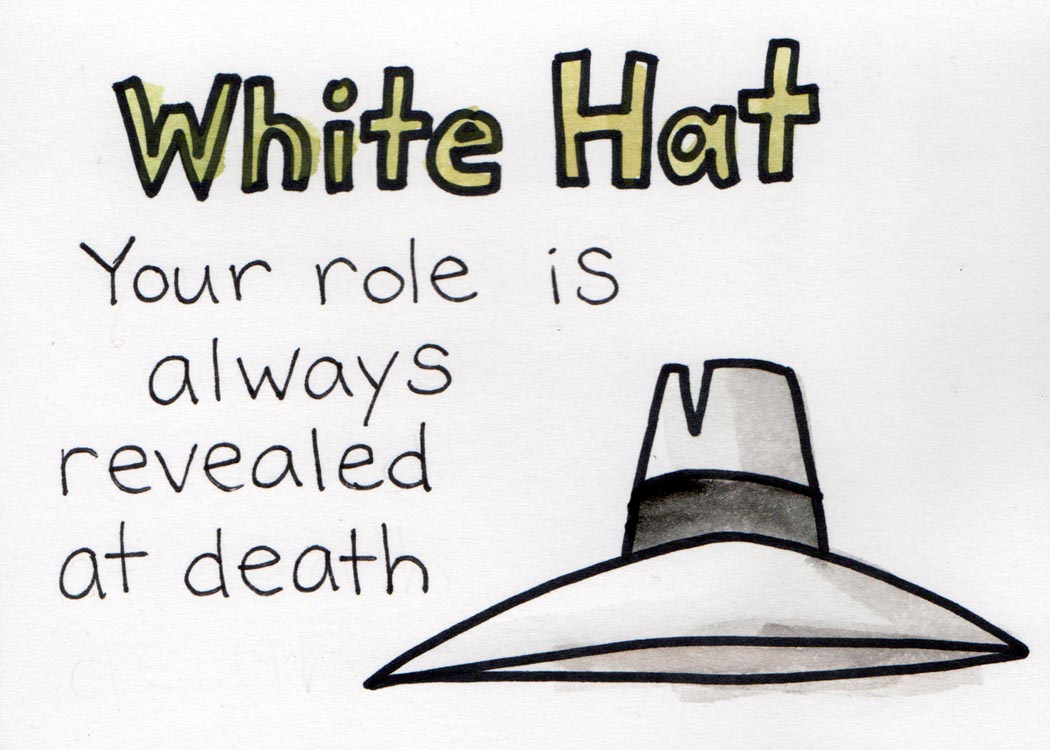 White Hat
Your role is
always
revealed
at death